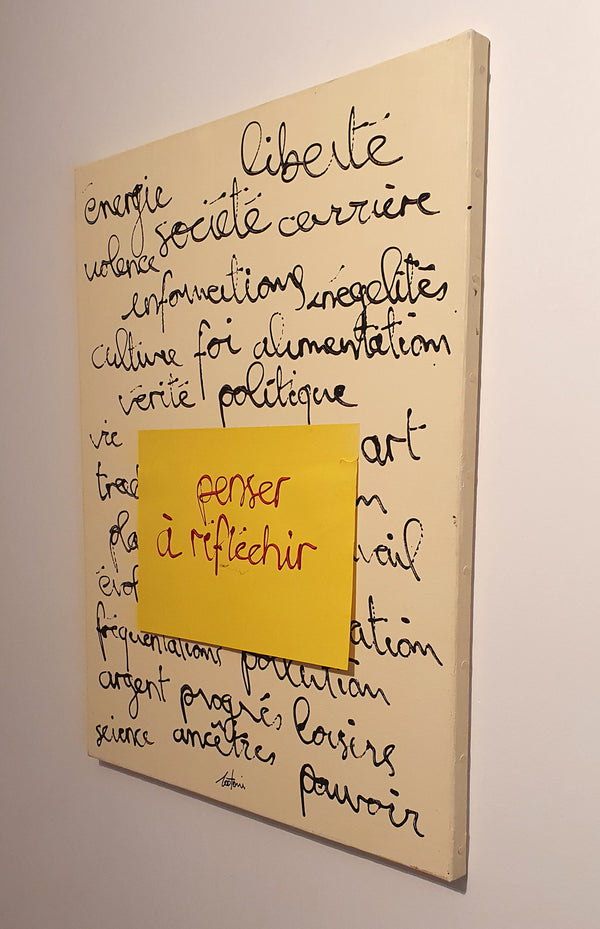 liberté
énergie société carrière
violence
informations inégalités
culture foi alimentation
vérité politique
vie art
penser
à réfléchir
fréquentations pollution
argent progrès loisirs
science ancêtres pouvoir